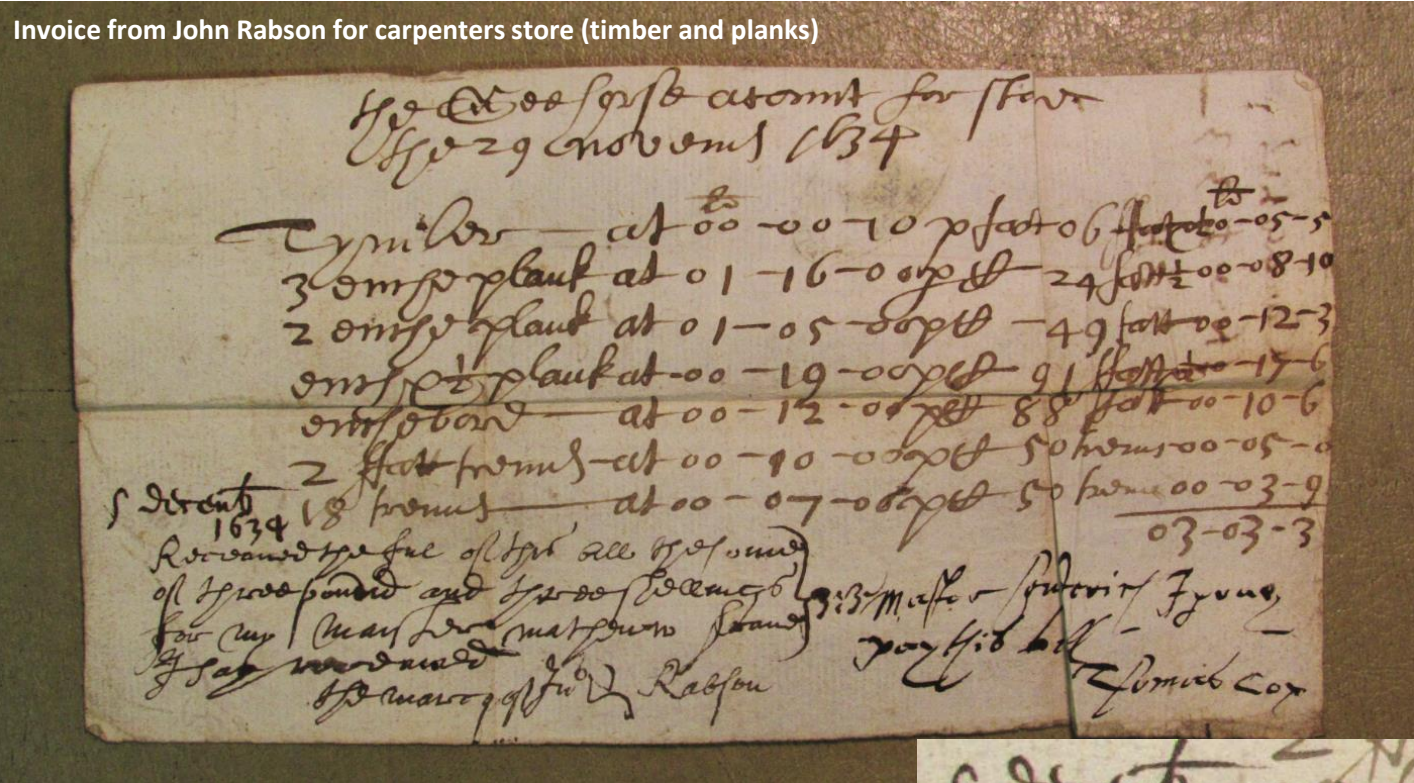 Invoice from John Rabson for carpenters store (timber and planks)
the Seehorse acount for store
the 29 novemb 1634
Tymber at 00-00-10 p foot 06 00-05-5
3 enche plank at 01-16-00 p 24 foott ½ 00-08-10
2 enche plank at 01-05-00 p 49 foott 00-12-3
ench ½ plank at 00-19-00 p 91 00-17-6
enche bord at 00-12-00 p 88 foott 00-10-6
2 ffoott at 00-10-00 p 50 00-05-0
18 at 00-07-06 p 50 00-03-9
03-03-3
5 decemb
1634
Receaued the ful of this bill the some
of three pound and three shellings
for my maister mathew
I say receaued
the marcq of Jno Rabson
3:3
pay this bill
Thomas Cox